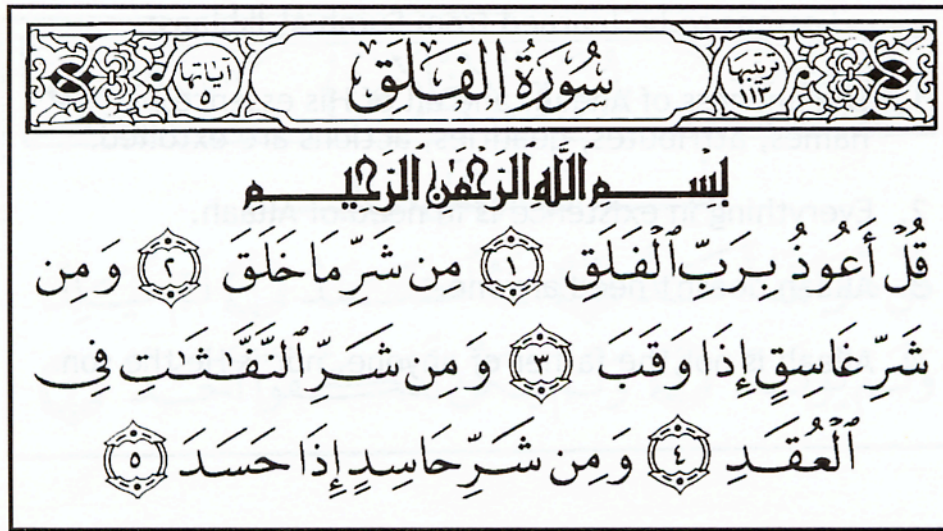 ترتيبها ١١٣ سُورَةُ الفَلَق آياتها ٥
بِسْمِ اللَّهِ الرَّحْمَٰنِ الرَّحِيمِ
قُلْ أَعُوذُ بِرَبِّ ٱلْفَلَقِ ١ مِن شَرِّ مَا خَلَقَ ٢ وَمِن
شَرِّ غَاسِقٍ إِذَا وَقَبَ ٣ وَمِن شَرِّ ٱلنَّفَّٰثَٰتِ فِى
ٱلْعُقَدِ ٤ وَمِن شَرِّ حَاسِدٍ إِذَا حَسَدَ ٥